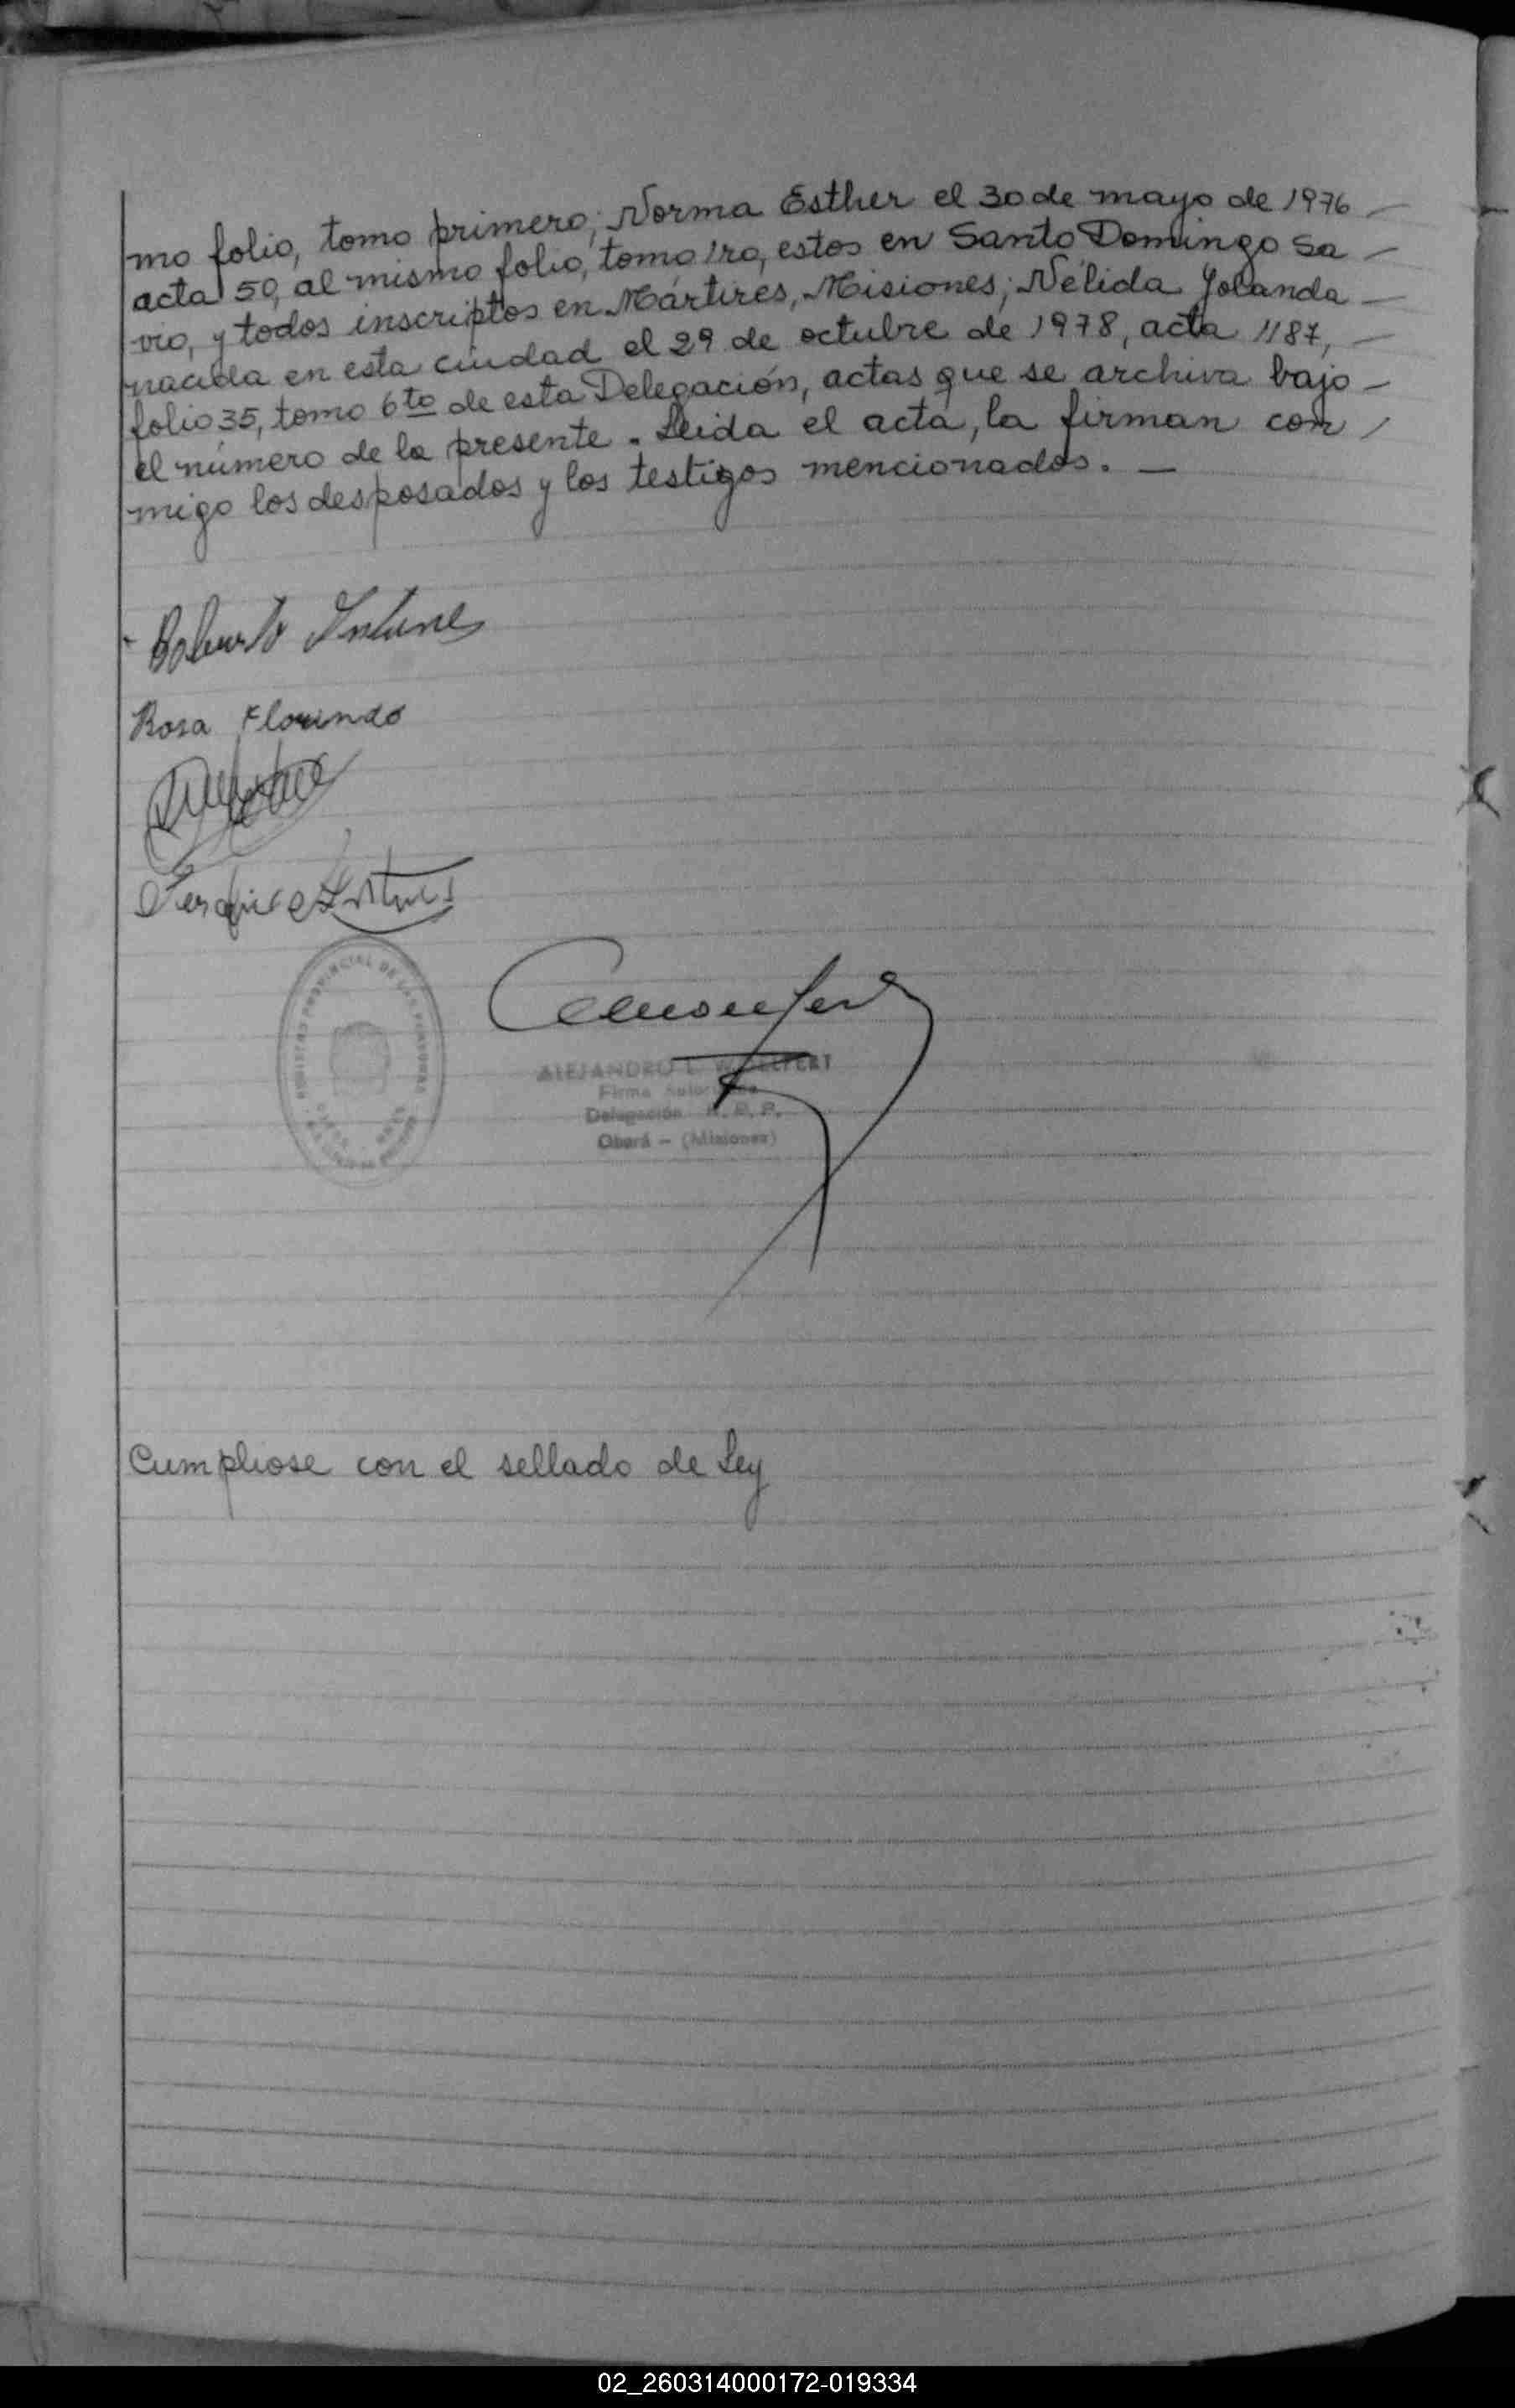 mo folio, tomo primero; Norma Esther el 30 de mayo de 1976 —
acta 50, al mismo folio, tomo 1ro, estos en Santo Domingo Sa —
vio, y todos inscriptos en Mártires, Misiones; Nélida Yolanda —
nacida en esta ciudad el 29 de octubre de 1978, acta 1187, —
folio 35, tomo 6to de esta Delegación, actas que se archiva bajo —
el número de la presente. Leida el acta, la firman con /
migo los desposados y los testigos mencionados. —
Roberto
Rosa Florindo
ALEJANDRO L.
Firma
Delegación R. P. P.
Oberá - (Misiones)
Cumpliose con el sellado de Ley
02_260314000172-019334